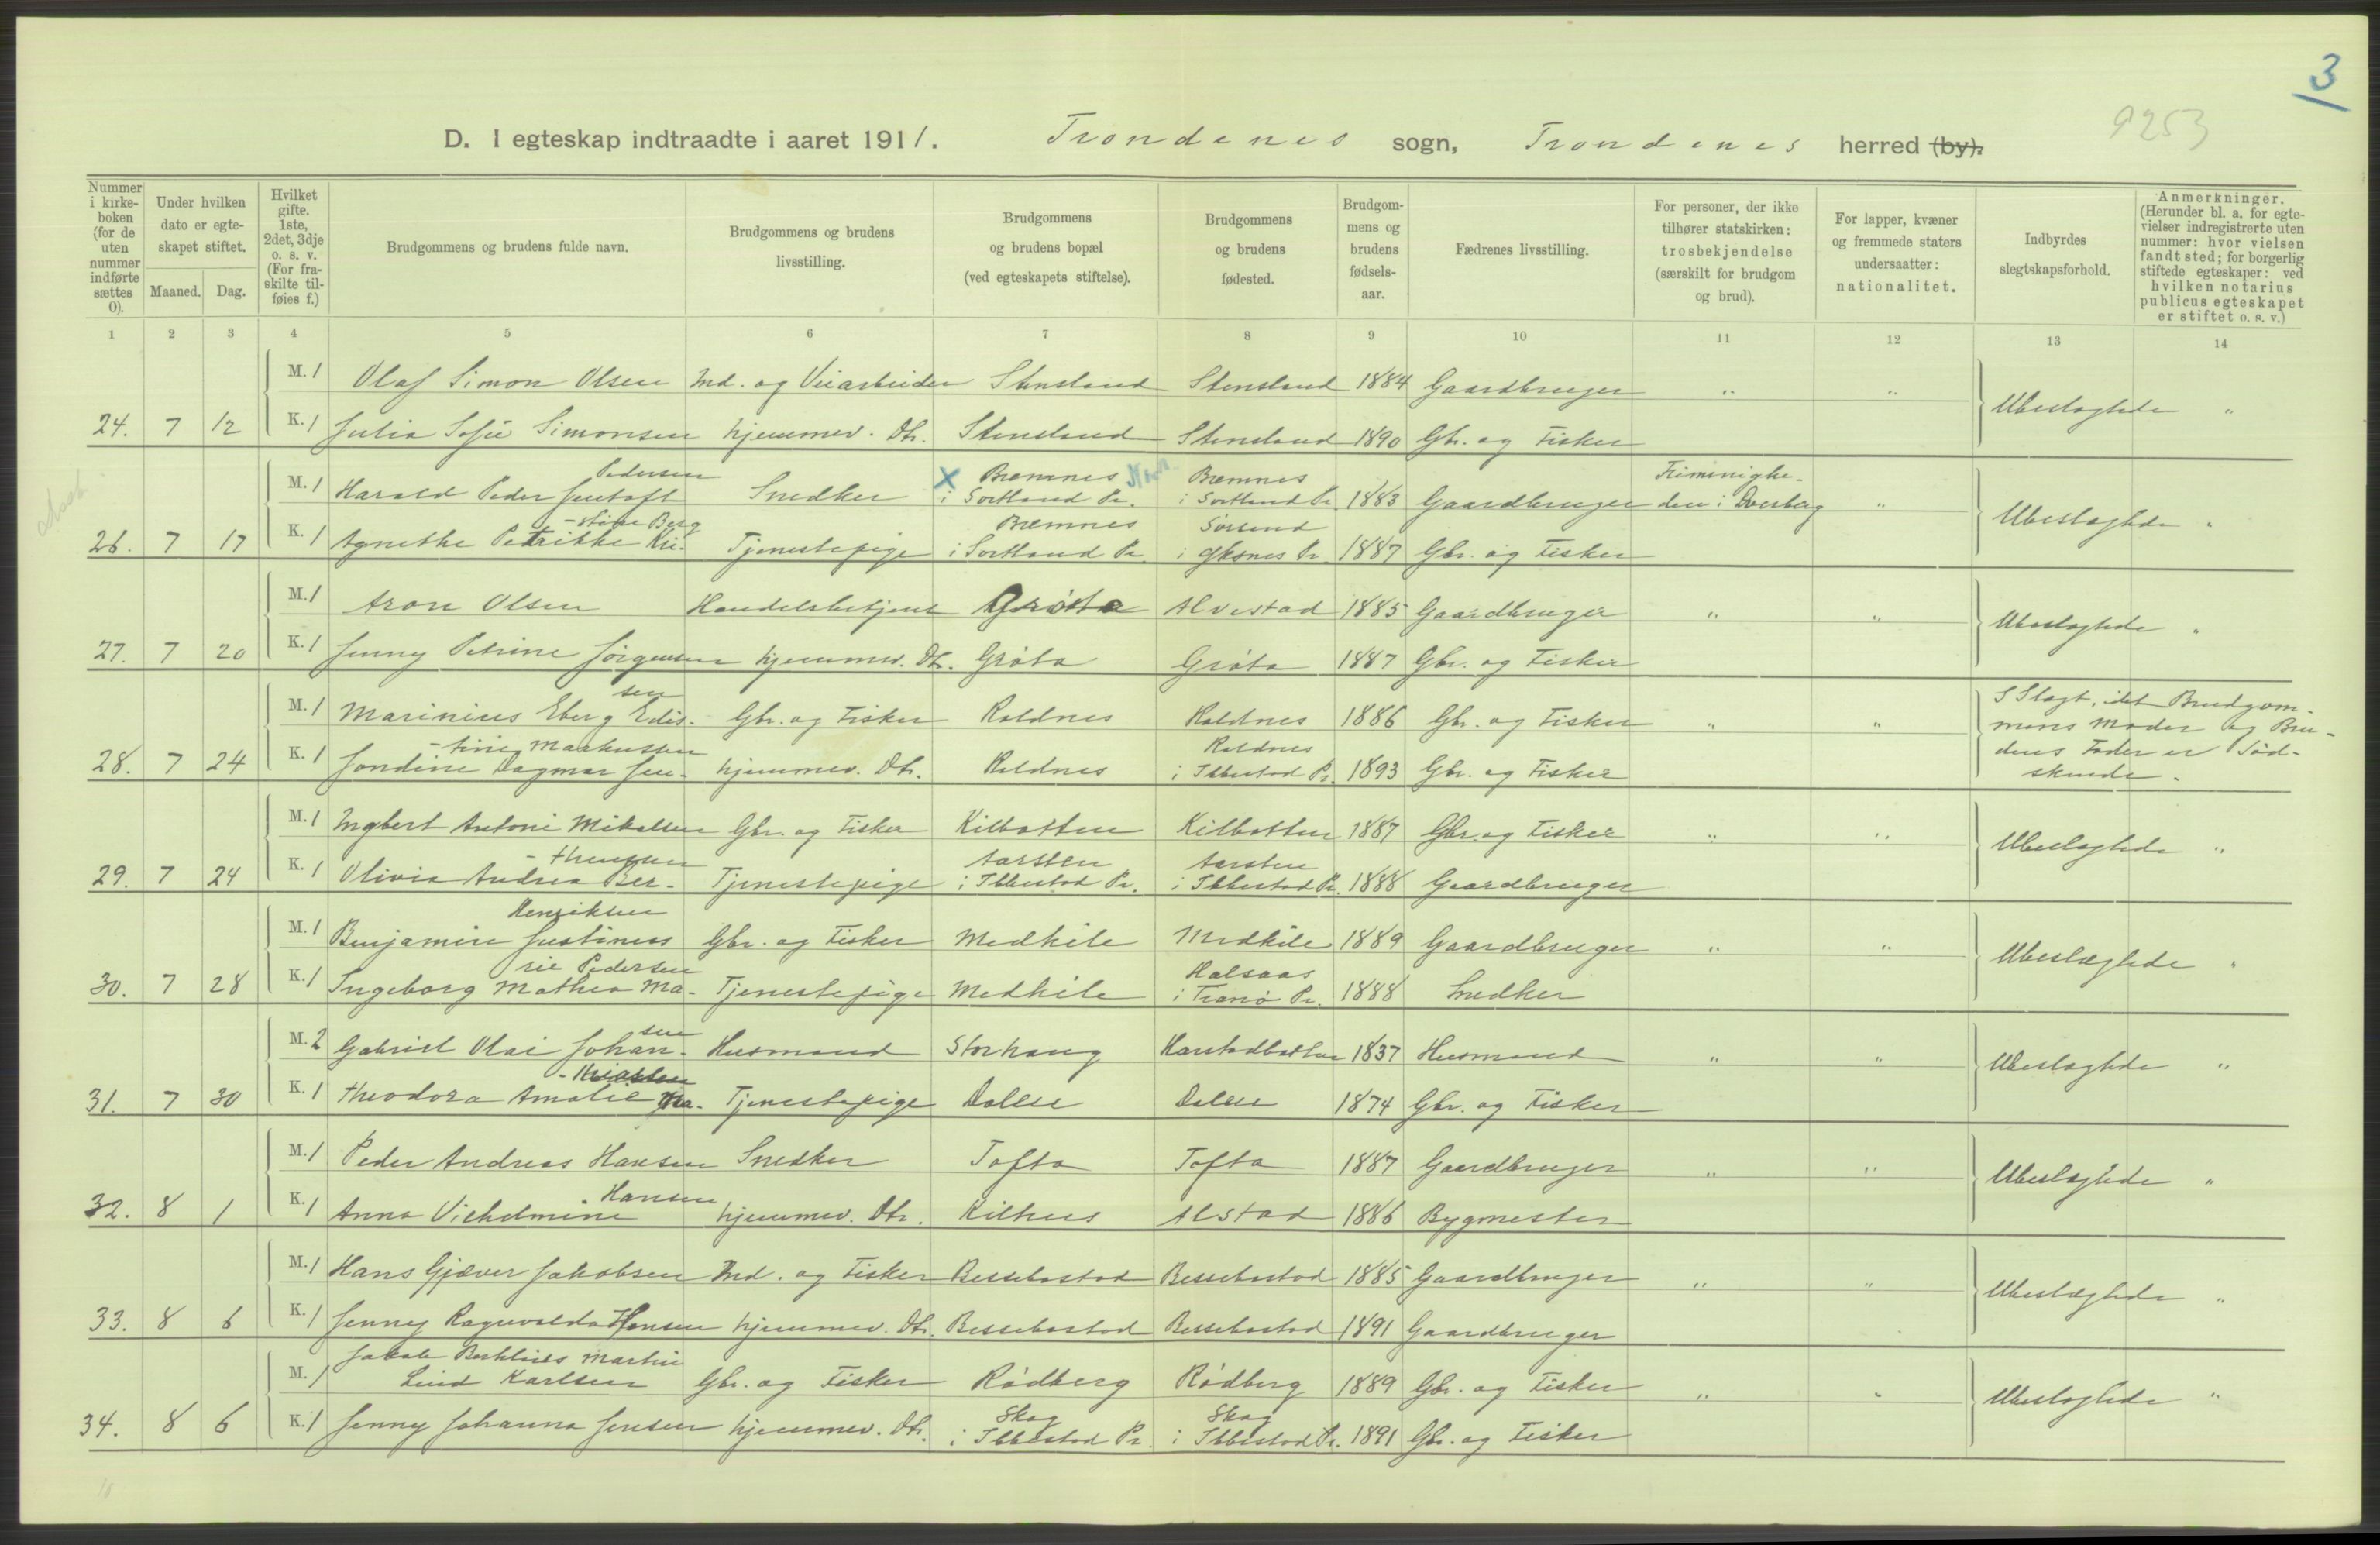 3
9253
D. I egteskap indtraadte i aaret 1911. Trondenes sogn, Trondenes herred (by).
Nummer i kirke-boken (for de uten nummer indførte sættes 0).
Under hvilken dato er egte-skapet stiftet.
Maaned. Dag.
Hvilket gifte. 1ste, 2det, 3dje o. s. v. (For fra-skilte til-føies f.)
Brudgommens og brudens fulde navn.
Brudgommens og brudens livsstilling.
Brudgommens og brudens bopæl (ved egteskapets stiftelse).
Brudgommens og brudens fødested.
Brudgom-mens og brudens fødsels-aar.
Fædrenes livsstilling.
For personer, der ikke tilhører statskirken: trosbekjendelse (særskilt for brudgom og brud).
For lapper, kvæner og fremmede staters undersaatter: nationalitet.
Indbyrdes slegtskapsforhold.
Anmerkninger. (Herunder bl. a. for egte-vielser indregistrerte uten nummer: hvor vielsen fandt sted; for borgerlig stiftede egteskaper: ved hvilken notarius publicus egteskapet er stiftet o. s. v.)
1 2 3 4 5 6 7 8 9 10 11 12 13 14
M. 1 Olaf Simon Olsen Ind. og Veiarbeider Stensland Stensland 1884 Gaardbruger " "
Ubeslægtede "
24. 7 12 K. 1 Julia Sofie Simonsen hjemmev. Dtr. Stensland Stensland 1890 Gbr. og Fisker
Pedersen Bremnes Bremnes Frimenighe-
M. 1 Harald Peder Jentoft Snedker X i Sortland Pr. i Sortland Pr. 1883 Gaardbruger den i Overberg "
Ubeslægtede "
-stine Berg Bremnes Sørsand
26. 7 17 K. 1 Agnethe Petrikke Kri- Tjenestepige i Sortland Pr. i Øksnes Pr. 1887 Gbr. og Fisker
M. 1 Aron Olsen Handelsbetjent Grøtta Alvestad 1885 Gaardbruger " "
Ubeslægtede "
27. 7 20 K. 1 Jenny Petrine Jørgensen hjemmev. Dtr. Grøta Grøta 1887 Gbr. og Fisker
sen
M. 1 Marinius Eberg Edis- Gbr. og Fisker Roldnes Roldnes 1886 Gbr. og Fisker " "
I Slægt, idet Brudgom-
mens Moder og Bru-
dens Fader er Sød-
skende.
-sine Markussen Roldnes
28. 7 24 K. 1 Jondine Dagmar Jen- hjemmev. Dtr. Roldnes i Ibbestad Pr. 1893 Gbr. og Fisker
M. 1 Ingbert Antoni Mikalsen Gbr. og Fisker Kilbotten Kilbotten 1887 Gbr. og Fisker " "
Ubeslægtede "
-theussen Aarsten Aarsten
29. 7 24 K. 1 Olivia Andrea Ber- Tjenestepige i Ibbestad Pr. i Ibbestad Pr. 1888 Gaardbruger
Henriksen
M. 1 Benjamin Justinus Gbr. og Fisker Medkile Medkile 1889 Gaardbruger " "
Ubeslægtede "
rie Pedersen Halsaas
30. 7 28 K. 1 Ingeborg Mathea Ma- Tjenestepige Medkile i Tranø Pr. 1888 Snedker
sen
M. 2 Gabriel Olai Johan- Husmand Storhaug Harstadbotten 1837 Husmand " "
Ubeslægtede "
31. 7 30 K. 1 Theodora Amalie Ma- Tjenestepige Dalen Dalen 1874 Gbr. og Fisker
M. 1 Peder Andreas Hansen Snedker Tofta Tofta 1887 Gaardbruger " "
Ubeslægtede "
Hansen
32. 8 1 K. 1 Anna Vilhelmine hjemmev. Dtr. Kilhus Alstad 1886 Bygmester
M. 1 Hans Gjæver Jakobsen Ind. og Fisker Bessebostad Bessebostad 1885 Gaardbruger " "
Ubeslægtede "
33. 8 6 K. 1 Jenny Ragnvalda Hansen hjemmev. Dtr. Bessebostad Bessebostad 1891 Gaardbruger
Jakob Berthius Martin
M. 1 Lind Karlsen Gbr. og Fisker Rødberg Rødberg 1889 Gbr. og Fisker " "
Ubeslægtede "
Skog Skog
34. 8 6 K. 1 Jenny Johanna Jensen hjemmev. Dtr. i Ibbestad Pr. i Ibbestad Pr. 1891 Gbr. og Fisker